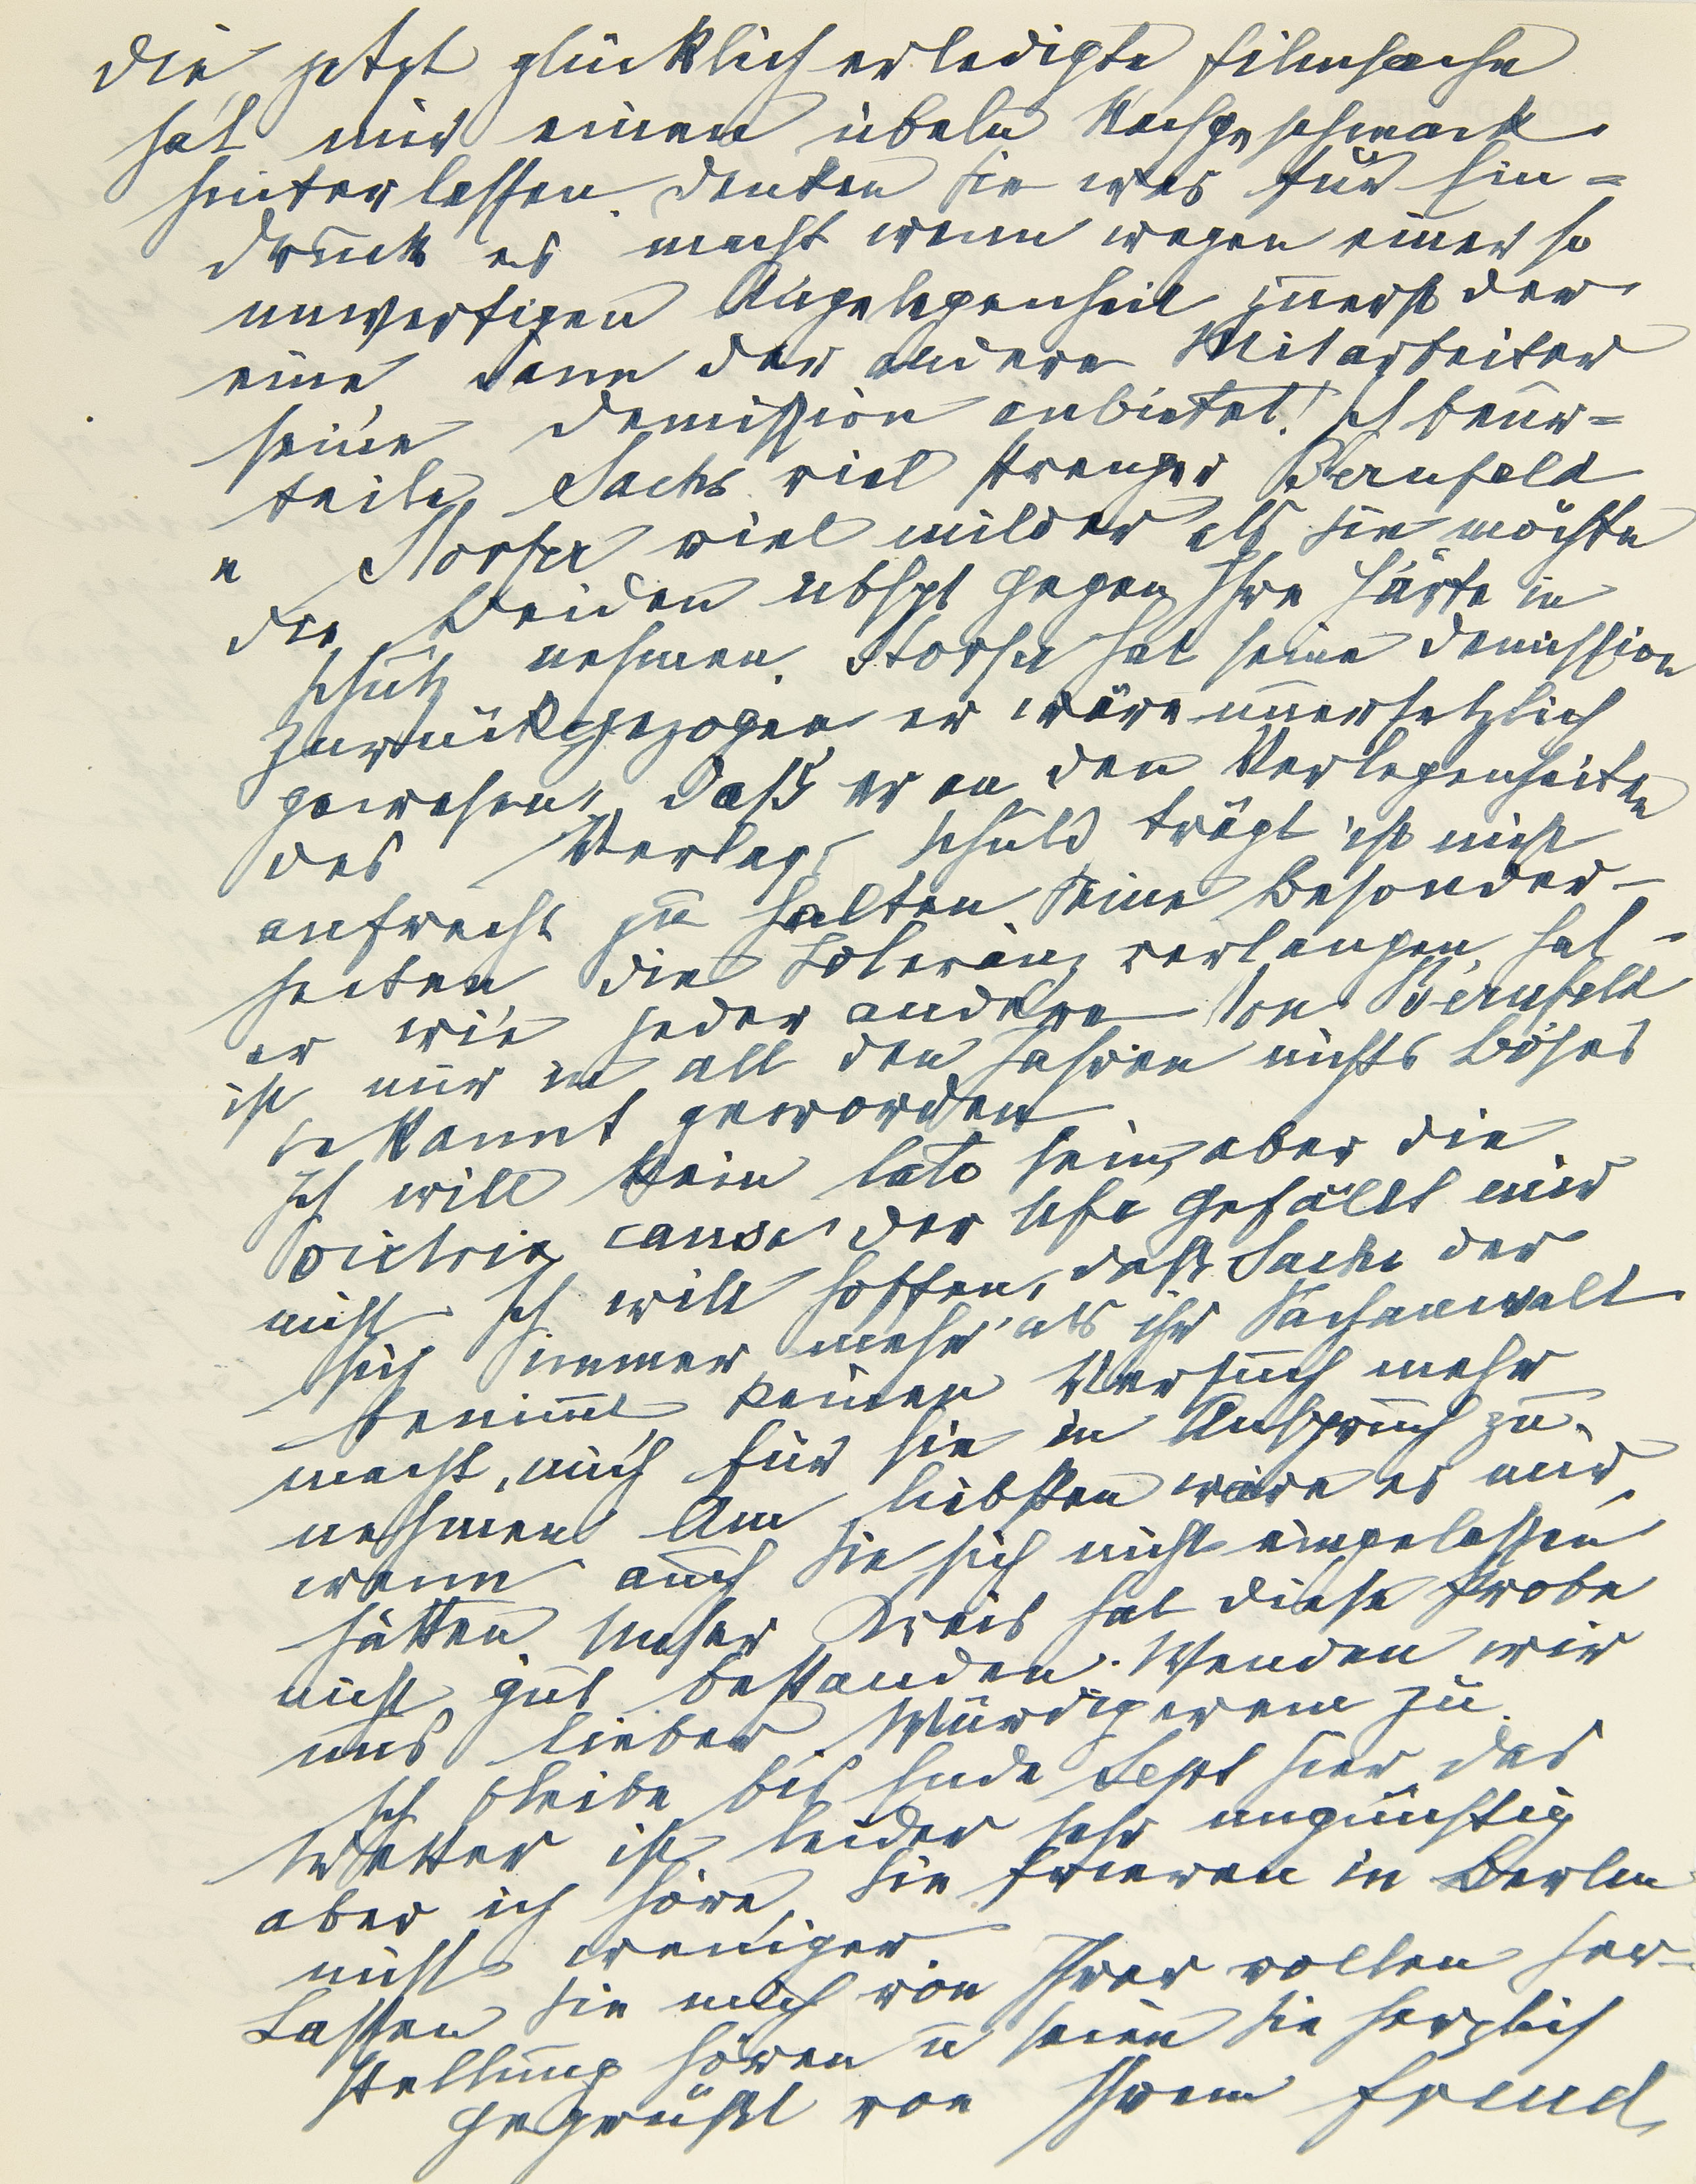 Die jetzt glücklich erledigte Filmsache
hat mir einen übeln Nachgeschmack
hinterlassen. Denken Sie was für Ein=
druck es macht wenn wegen einer so
unwertigen Angelegenheit zuerst der
eine, dann der andere Mitarbeiter
seine Demission anbietet! Ich beur=
teile Sachs viel strenger Bernfeld
u Storfer viel milder als Sie möchte
die Beiden übhpt gegen Ihre Härte in
Schutz nehmen. Storfer hat seine Demission
zurückgezogen er wäre unersetzlich
gewesen, daß er an den Verlegenheiten
des Verlags Schuld trägt ist nicht
aufrecht zu halten. Seine Besonder-
heiten die Toleranz verlangen, hat
er wie jeder andere Von Bernfeld
ist mir in all den Jahren nichts Böses
bekannt geworden
Ich will kein Cato sein, aber die
victrix causa der Ufa gefällt mir
nicht Ich will hoffen, daß Sachs der
sich immer mehr als ihr Sachanwalt
benimmt keinen Versuch mehr
macht, mich für sie in Anspruch zu
nehmen Am liebsten wäre es mir,
wenn auch Sie sich nicht eingelassen
hätten Unser Kreis hat diese Probe
nicht gut bestanden. Wenden wir
uns lieber Würdigerem zu.
Ich bleibe bis Ende Sept hier das
Wetter ist leider sehr ungünstig
aber ich höre, Sie frieren in Berlin
nicht weniger.
Lassen Sie mich von Ihrer vollen Her-
stellung hören u seien Sie herzlich
gegrüßt von Ihrem Freud